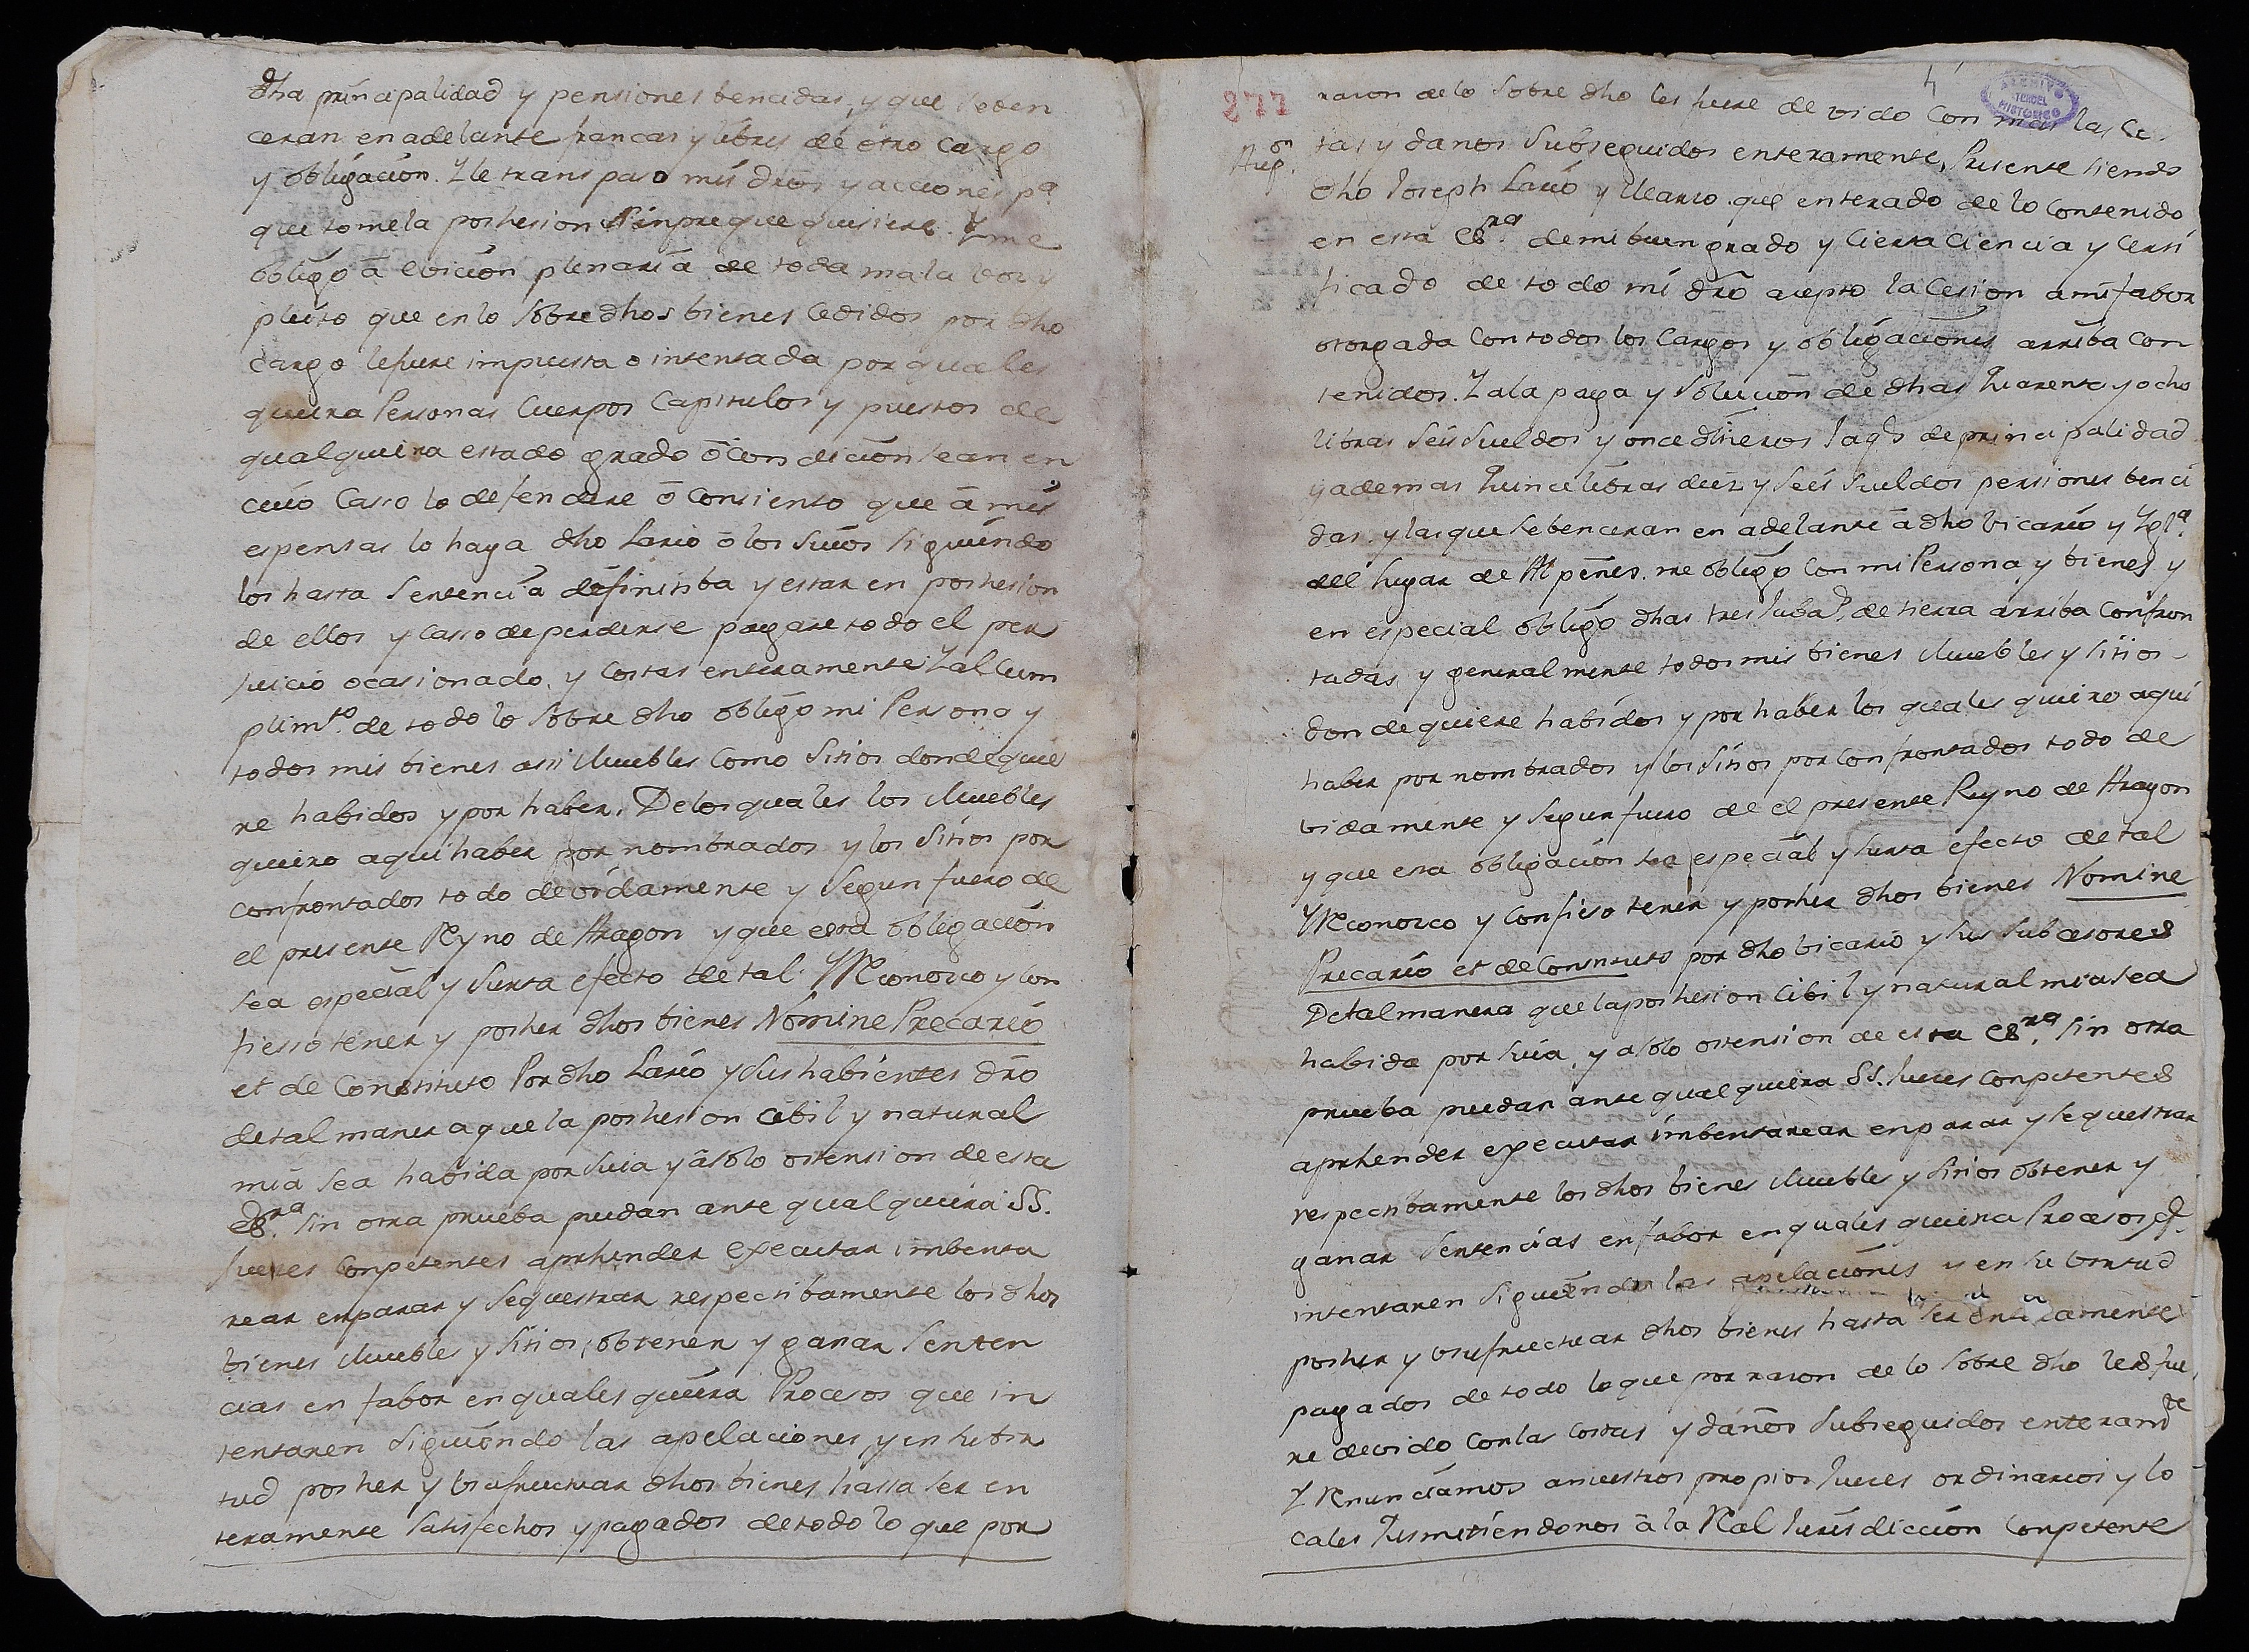 dha principalidad y pensiones bencidas, y que se ben
ceran en adelante francas y libres de otro cargo
y obligacion. Y le transpaso mis dros y acciones pa.
que tome la poshesion sinpre que quisiere. Y me
obligo â evicion plenaria de toda mala voz y
pleito que en lo sobre dhos bienes cedidos por dho
cargo le fuere impuesta o intentada por quales
quiera Personas Cuerpos Capitulos y puestos de
qualquiera estado grado ô condicion sean en
cuio Casso lo defendere ô consiento que â mis
espensas lo haga dho Lario ô los suios siguiendo
los hasta sentencia definitiba y estar en poshesion
de ellos y casso de perderse pagare todo el per
juicio ocasionado, y costas enteramente Y al cum
plimto. de todo lo sobre dho obligo mi Persona y
todos mis bienes assi Muebles como sitios dondequie
re habidos y por haber. De los quales los Muebles
quiero aqui haber por nombrados y los sitios por
confrontados todo devidamente y segun fuero de
el presente Reyno de Aragon y que esta obligacion
sea especial y surta efecto de tal. Y Reconozco y con
fiesso tener y posher dhos bienes Nomine Precario
et de Constituto Por dho Lario y sus habientes dro
de tal manera que la poshesion cibil y natural
mia sea habida por suia y â solo ostension de esta
esra. sin otra prueba puedan ante qualquiera SS.
Jueces conpetentes aprhender executar imbenta
rear enparar y sequestrar respectibamente los dhos
bienes Muebles y sitios, obtener y ganar senten
cias en fabor en quales quiera Procesos que in
tentaren siguiendo las apelaciones y en su bir
tud posher y usufructuar dhos bienes hasta ser en
teramente satisfechos y pagados de todo lo que por
4
ARCHIVO
HISTORICO
TERUEL
277
razon de lo sobre dho les fuere devido con mas las cos
tas y danos subseguidos enteramente, Presente siendo
dho Joseph Lario y que enterado de lo contenido
en esta esra. de mi buen grado y cierta ciencia y certi
ficado de todo mi dro acepto la cesion a mi fabor
otorgada con todos los cargos y obligaciones arriba con
tenidos. Y a la paga y solucion de dhas quarenta y ocho
libras seis sueldos y once dineros Jaqs. de principalidad
y ademas quince libras diez y seis sueldos pensiones benci
das. y las que se benceran en adelante â dho bicario y Ygla.
del lugar de Alpeñes. me obligo con mi Persona y bienes y
en especial obligo dhas tres de tierra arriba confron
tadas y generalmente todos mis bienes Muebles y sitios
donde quiere habidos y por haber los quales quiero aqui
haber por nombrados y los sitios por confrontados todo de
bidamente y segun fuero de el presente Reyno de Aragon
y que esta obligacion sea especial y surta efecto de tal
Y Reconozco y confieso tener y posher dhos bienes Nomine
Precario et de Constituto por dho bicario y sus subcesores
De tal manera que la poshesion cibil y natural mia sea
habida por suia, y a solo ostension de esta esra. sin otra
prueba puedan ante qualquiera SS. Jueces conpetentes
aprhender executar imbentarear enparar y sequestrar
respectibamente los dhos bienes Muebles y sitios obtener y
ganar sentencias en fabor en quales quiera Procesos q.
intentaren siguiendo las apelaciones y en su birtud
posher y usufructuar dhos bienes hasta ser enteramente
pagados de todo lo que por razon de lo sobre dho les fue
re devido con las costas y daños subseguidos enteramte
Y Renunciamos a nuestros propios Jueces ordinarios y lo
cales Jusmetiendonos â la Real Jurisdiccion conpetente